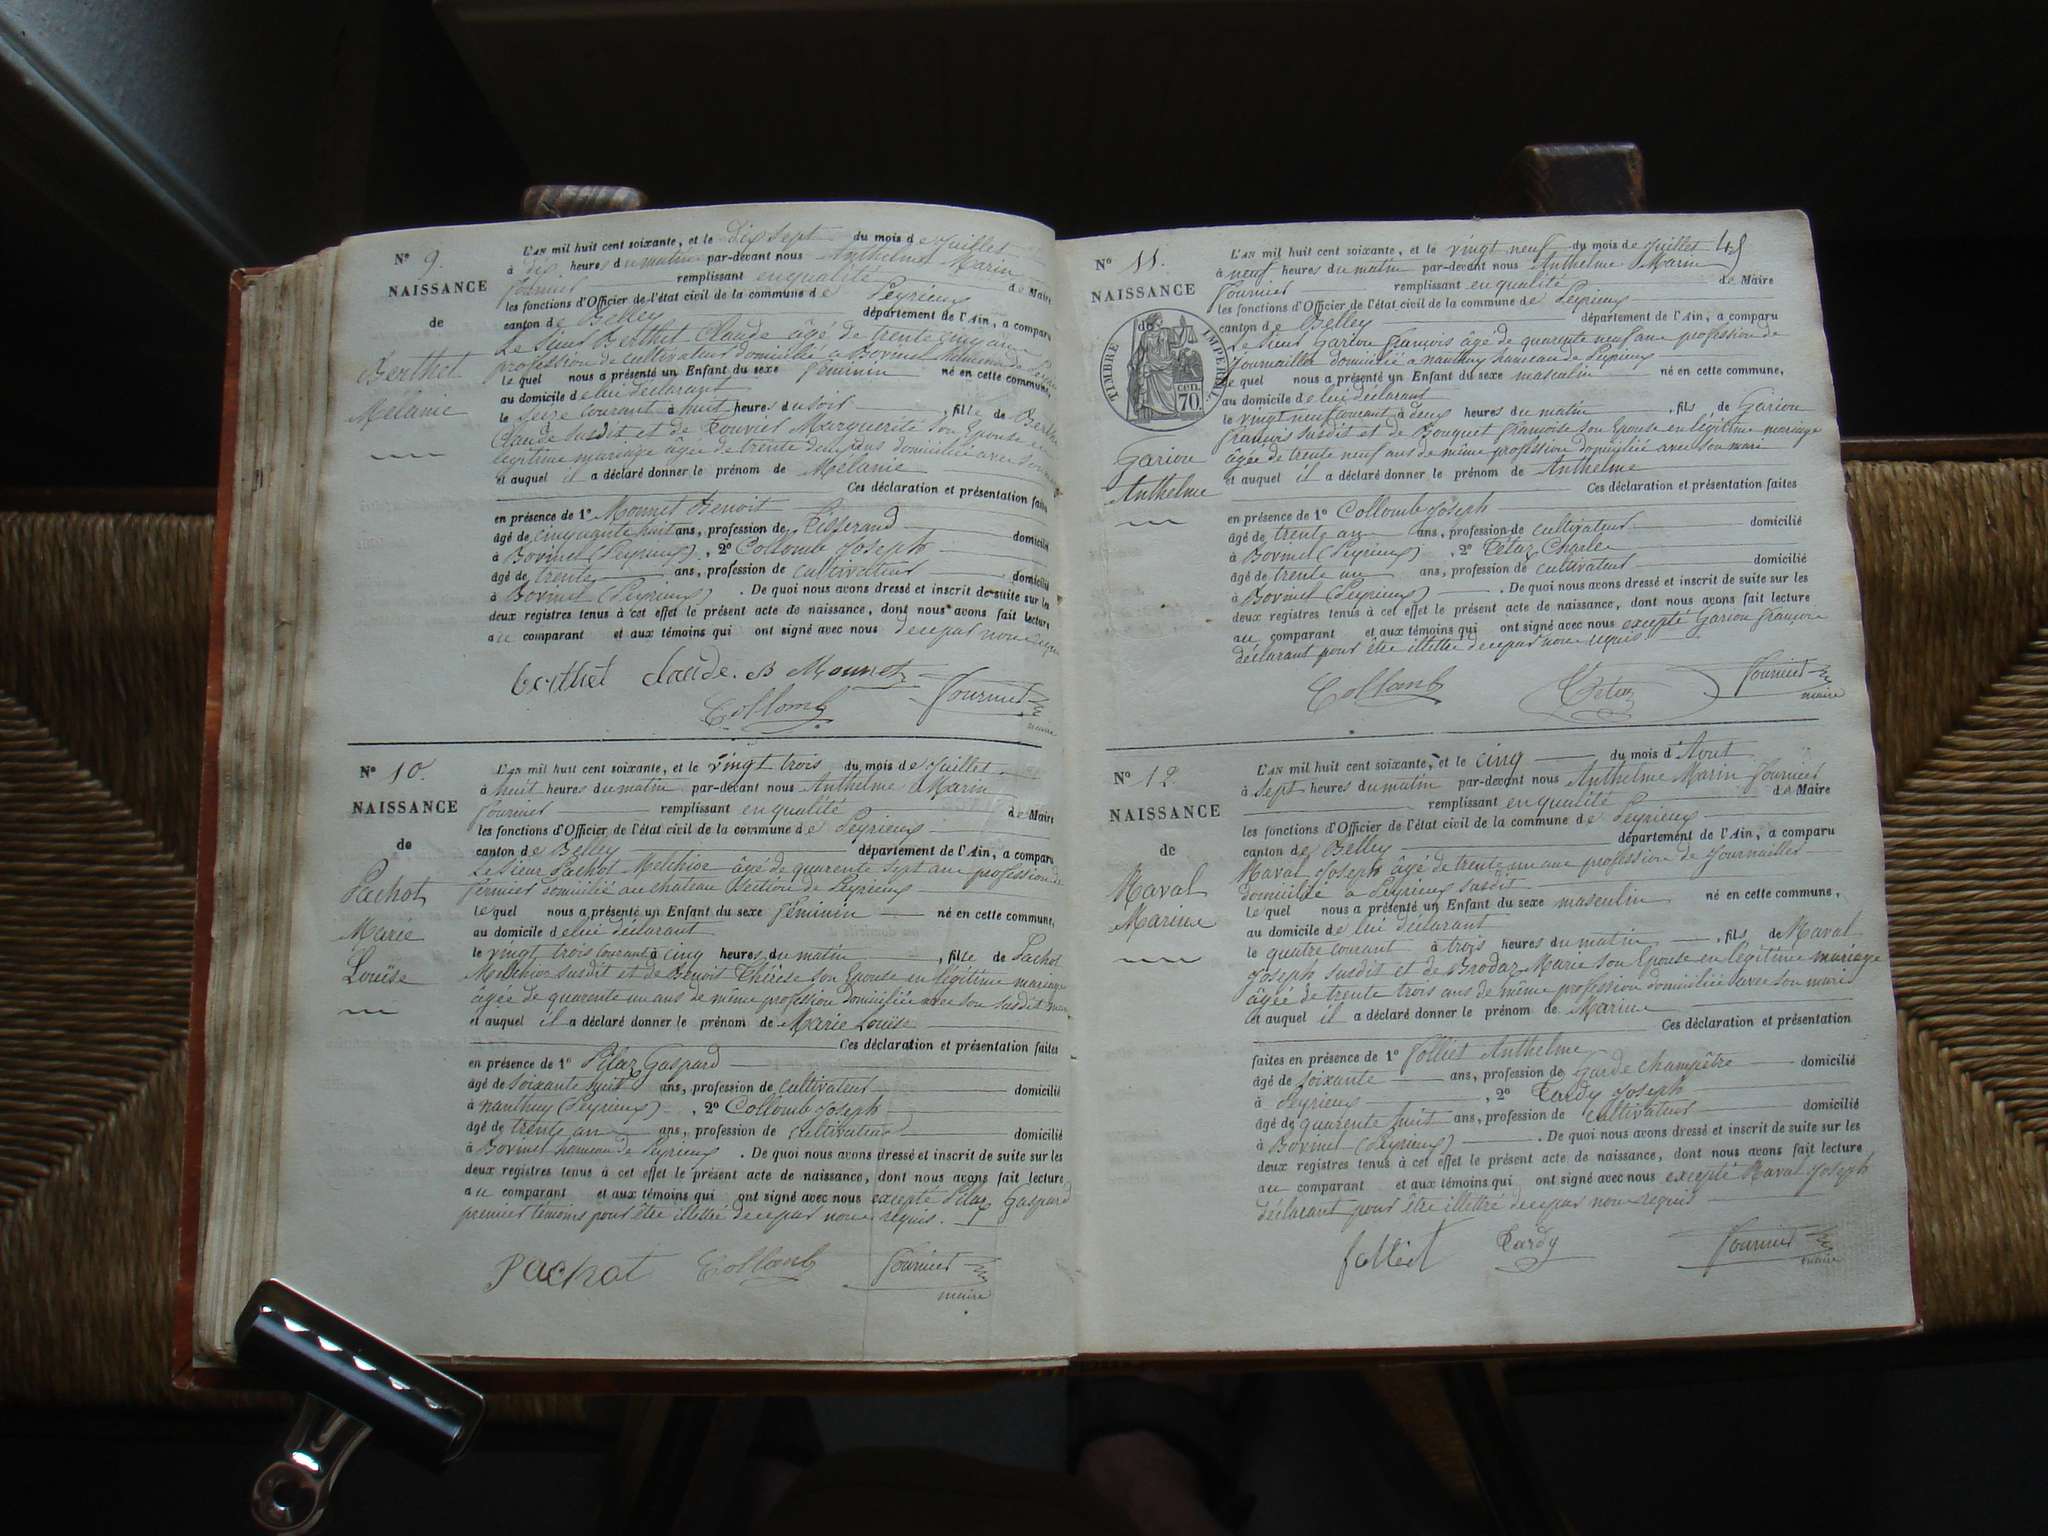 N° 9.
NAISSANCE
de
Berthet
Mélanie
L'AN mil huit cent soixante, et le Dix sept du mois de Juillet
à dix heures du matin par-devant nous Anthelme Marin
Fournier remplissant en qualité de Maire
les fonctions d'Officier de l'état civil de la commune de Peyrieux
canton de Belley département de l'Ain, a comparu
Le Sieur Berthet Claude âgé de trente cinq ans
profession de cultivateur domicilié à Bovinel hameau de
Le quel nous a présenté un Enfant du sexe féminin né en cette commune,
au domicile de lui déclarant
le seize courant à huit heures du soir, fille de
Claude susdit et de Touvier Marguerite son Epouse en
légitime mariage âgée de trente deux ans domiciliée avec son
et auquel il a déclaré donner le prénom de Mélanie
Ces déclaration et présentation faites
en présence de 1° Monnet Benoit
âgé de cinquante huit ans, profession de Tisserand domicilié
à Bovinel (Peyrieux), 2° Collomb Joseph
âgé de trente ans, profession de cultivateur domicilié
à Bovinel (Peyrieux). De quoi nous avons dressé et inscrit de suite sur les
deux registres tenus à cet effet le présent acte de naissance, dont nous avons fait lecture
au comparant et aux témoins qui ont signé avec nous de ce par nous
berthet claude. B Monnet
Collomb Fournier
maire
N° 10.
NAISSANCE
de
Pachot
Marie
Louise
L'AN mil huit cent soixante, et le vingt trois du mois de Juillet
à huit heures du matin par-devant nous Anthelme Marin
Fournier remplissant en qualité de Maire
les fonctions d'Officier de l'état civil de la commune de Peyrieux
canton de Belley département de l'Ain, a comparu
Le Sieur Pachot Melchior âgé de quarente sept ans profession de
fermier domicilié au chateau section de Peyrieux
Le quel nous a présenté un Enfant du sexe féminin né en cette commune,
au domicile de lui déclarant
le vingt trois courant à cinq heures du matin, fille de Pachot
Melchior susdit et de Benoit Thérèse son Epouse en légitime mariage
âgée de quarente un ans de même profession domiciliée avec son susdit mari
et auquel il a déclaré donner le prénom de Marie Louise
Ces déclaration et présentation faites
en présence de 1° Pélaz Gaspard
âgé de soixante huit ans, profession de cultivateur domicilié
à Nanthuy (Peyrieux), 2° Collomb Joseph
âgé de trente an ans, profession de cultivateur domicilié
à Bovinel hameau de Peyrieux. De quoi nous avons dressé et inscrit de suite sur les
deux registres tenus à cet effet le présent acte de naissance, dont nous avons fait lecture
au comparant et aux témoins qui ont signé avec nous excepté Pélaz Gaspard
premier témoins pour être illettré de ce par nous requis.
Pachot Collomb Fournier
maire
N° 11.
NAISSANCE
de
TIMBRE IMPERIAL
70. cen.
Gariou
Anthelme
L'AN mil huit cent soixante, et le vingt neuf du mois de Juillet
à neuf heures du matin par-devant nous Anthelme Marin
Fournier remplissant en qualité de Maire
les fonctions d'Officier de l'état civil de la commune de Peyrieux
canton de Belley département de l'Ain, a comparu
Le Sieur Gariou François âgé de quarente neuf ans profession de
Journaillier domicilié à nanthuy hameau de Peyrieux
Le quel nous a présenté un Enfant du sexe masculin né en cette commune,
au domicile de lui déclarant
le vingt neuf courant à deux heures du matin, fils de Gariou
François susdit et de Bouquet Françoise son Epouse en légitime mariage
âgée de trente neuf ans de même profession domiciliée avec son mari
et auquel il a déclaré donner le prénom de Anthelme
Ces déclaration et présentation faites
en présence de 1° Collomb Joseph
âgé de trente an ans, profession de cultivateur domicilié
à Bovinel (Peyrieux), 2° Tétaz Charles
âgé de trente un ans, profession de cultivateur domicilié
à Bovinel (Peyrieux). De quoi nous avons dressé et inscrit de suite sur les
deux registres tenus à cet effet le présent acte de naissance, dont nous avons fait lecture
au comparant et aux témoins qui ont signé avec nous excepté Gariou François
déclarant pour être illettré de ce par nous requis
Collomb Tétaz Fournier
maire
N° 12
NAISSANCE
de
Maval
Marine
L'AN mil huit cent soixante, et le cinq du mois d'Aout
à sept heures du matin par-devant nous Anthelme Marin Fournier
remplissant en qualité de Maire
les fonctions d'Officier de l'état civil de la commune de Peyrieux
canton de Belley département de l'Ain, a comparu
Maval Joseph âgé de trente un ans profession de Journailler
domicilié à Peyrieux susdit
Le quel nous a présenté un Enfant du sexe masculin né en cette commune,
au domicile de lui déclarant
le quatre courant à trois heures du matin, fils de Maval
Joseph susdit et de Brodaz Marie son Epouse en légitime mariage
âgée de trente trois ans de même profession domiciliée avec son mari
et auquel il a déclaré donner le prénom de Marine
Ces déclaration et présentation
faites en présence de 1° Folliet Anthelme
âgé de soixante ans, profession de Garde champêtre domicilié
à Peyrieux, 2° Tardy Joseph
âgé de quarente huit ans, profession de cultivateur domicilié
à Bovinel (Peyrieux). De quoi nous avons dressé et inscrit de suite sur les
deux registres tenus à cet effet le présent acte de naissance, dont nous avons fait lecture
au comparant et aux témoins qui ont signé avec nous excepté Maval Joseph
déclarant pour être illettré de ce par nous requis
folliet Tardy Fournier
maire